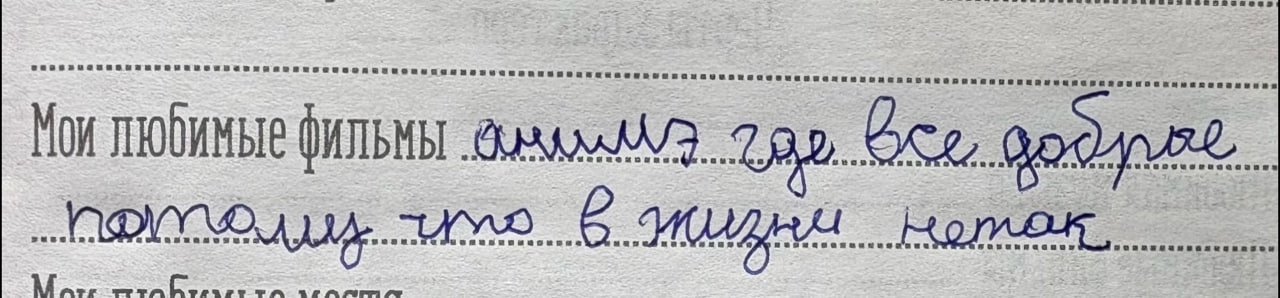 Мои любимые фильмы анимэ где все добрые
потому что в жизни нетак
Мои любимые места